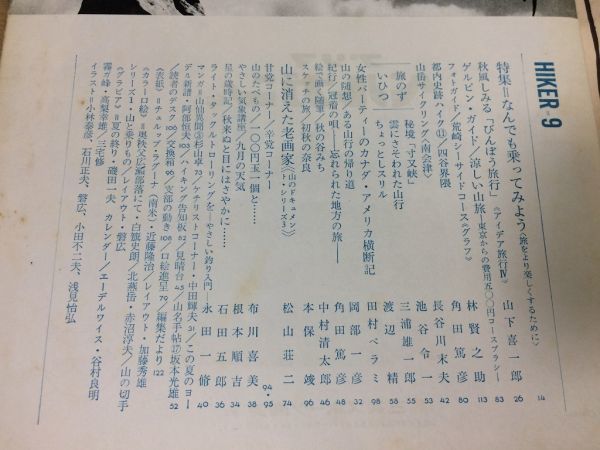 HIKER・9
特集＝なんでも乗ってみよう〈旅をより楽しくするために〉 14
秋風しみる「びんぼう旅行」〈アイデア旅行Ⅳ〉 山下喜一郎 26
ゲルピン・ガイド／涼しい山旅―東京からの費用五〇〇円コースプラン― 83
フォトガイド／荒崎シーサイドコース〈グラフ〉 林賢之助 113
都内史跡ハイク⑪／四谷界隈 角田篤彦 80
山岳サイクリング〈南会津〉 長谷川末夫 42
旅のずいひつ
秘境、「寸又峡」 池谷令一 53
雲にさそわれた山行 三浦雄一郎 55
ちょっとしスリル 渡辺精 58
女性パーティーのカナダ・アメリカ横断記 田村ペラミ 98
山の随想／ある山行の帰り道 岡部一彦 32
紀行／冠宿の唄――忘れられた地方の旅―― 角田篤彦 48
絵で画く随筆／秋の谷みち 中村清太郎 46
スケッチの旅／初秋の奈良 本保竣 96
山に消えた老画家〈山のドキュメント・シリーズ3〉 松山荘二 74
甘党コーナー／辛党コーナー 94・95
山のたべもの／一〇〇円玉一個と…… 布川喜美 38
やさしい気象講座／九月の天気 根本順吉 34
星の歳時記／秋来ぬと目にはさやかに…… 石田五郎 36
ライト・タックルトローリングを――やさしい釣り入門―― 永田一脩 40
マンガ＝山出異聞素杉山卓 73／ケチリストコーナー・中田輝夫 31／この夏のヨー
デル新譜・阿部恒男 103／ハイキング告知板 62／見晴台 45／山名手帖⑰坂本光雄 52
／読者のデスク 106／交換箱 96／支部の動き 108／口絵進呈 79／編集だより 122
〈表紙〉＝チュルップ・ラグーナ（南米）・近藤隆治／レイアウト・加藤秀雄
〈カラー口絵〉＝奥秩父広瀬部落にて・白籏史朗／北燕岳・赤沼淳夫／山の切手
シリーズ1・山と乗りもの／レイアウト・磐広
〈グラビア〉＝夏の終り・磯田一夫 カレンダー／エーデルワイス・谷村良明
霧ガ峰・高梨幸雄、三宅修
イラスト＝小林泰彦、石川正夫、磐広、小田不二夫、浅見怡弘